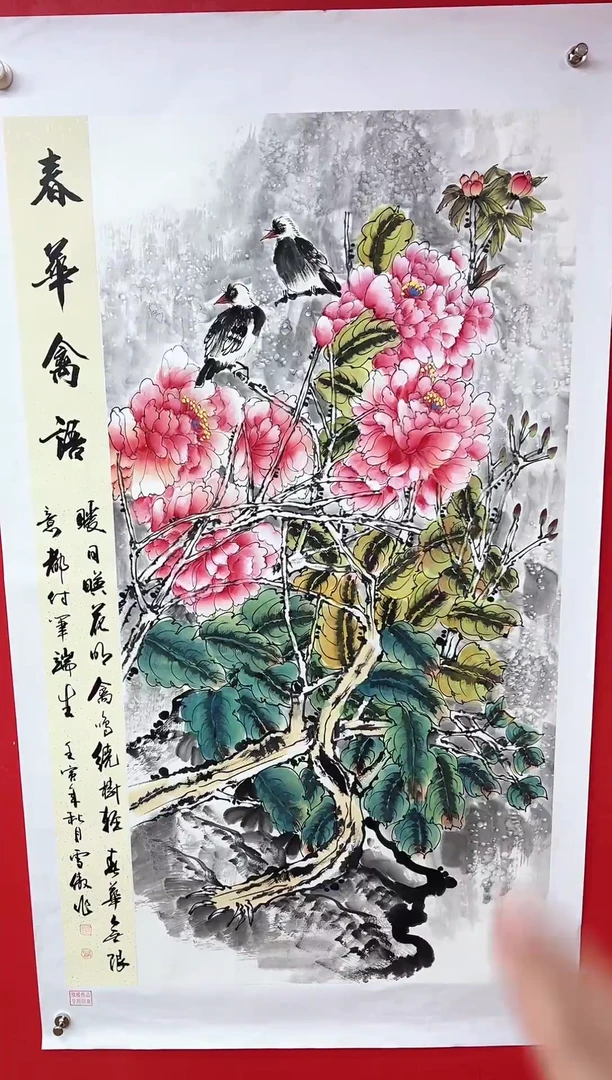 春華禽語
暖日暎花明禽鳴繞樹輕春華無限
意都付筆端生
壬寅年秋月雪傲作